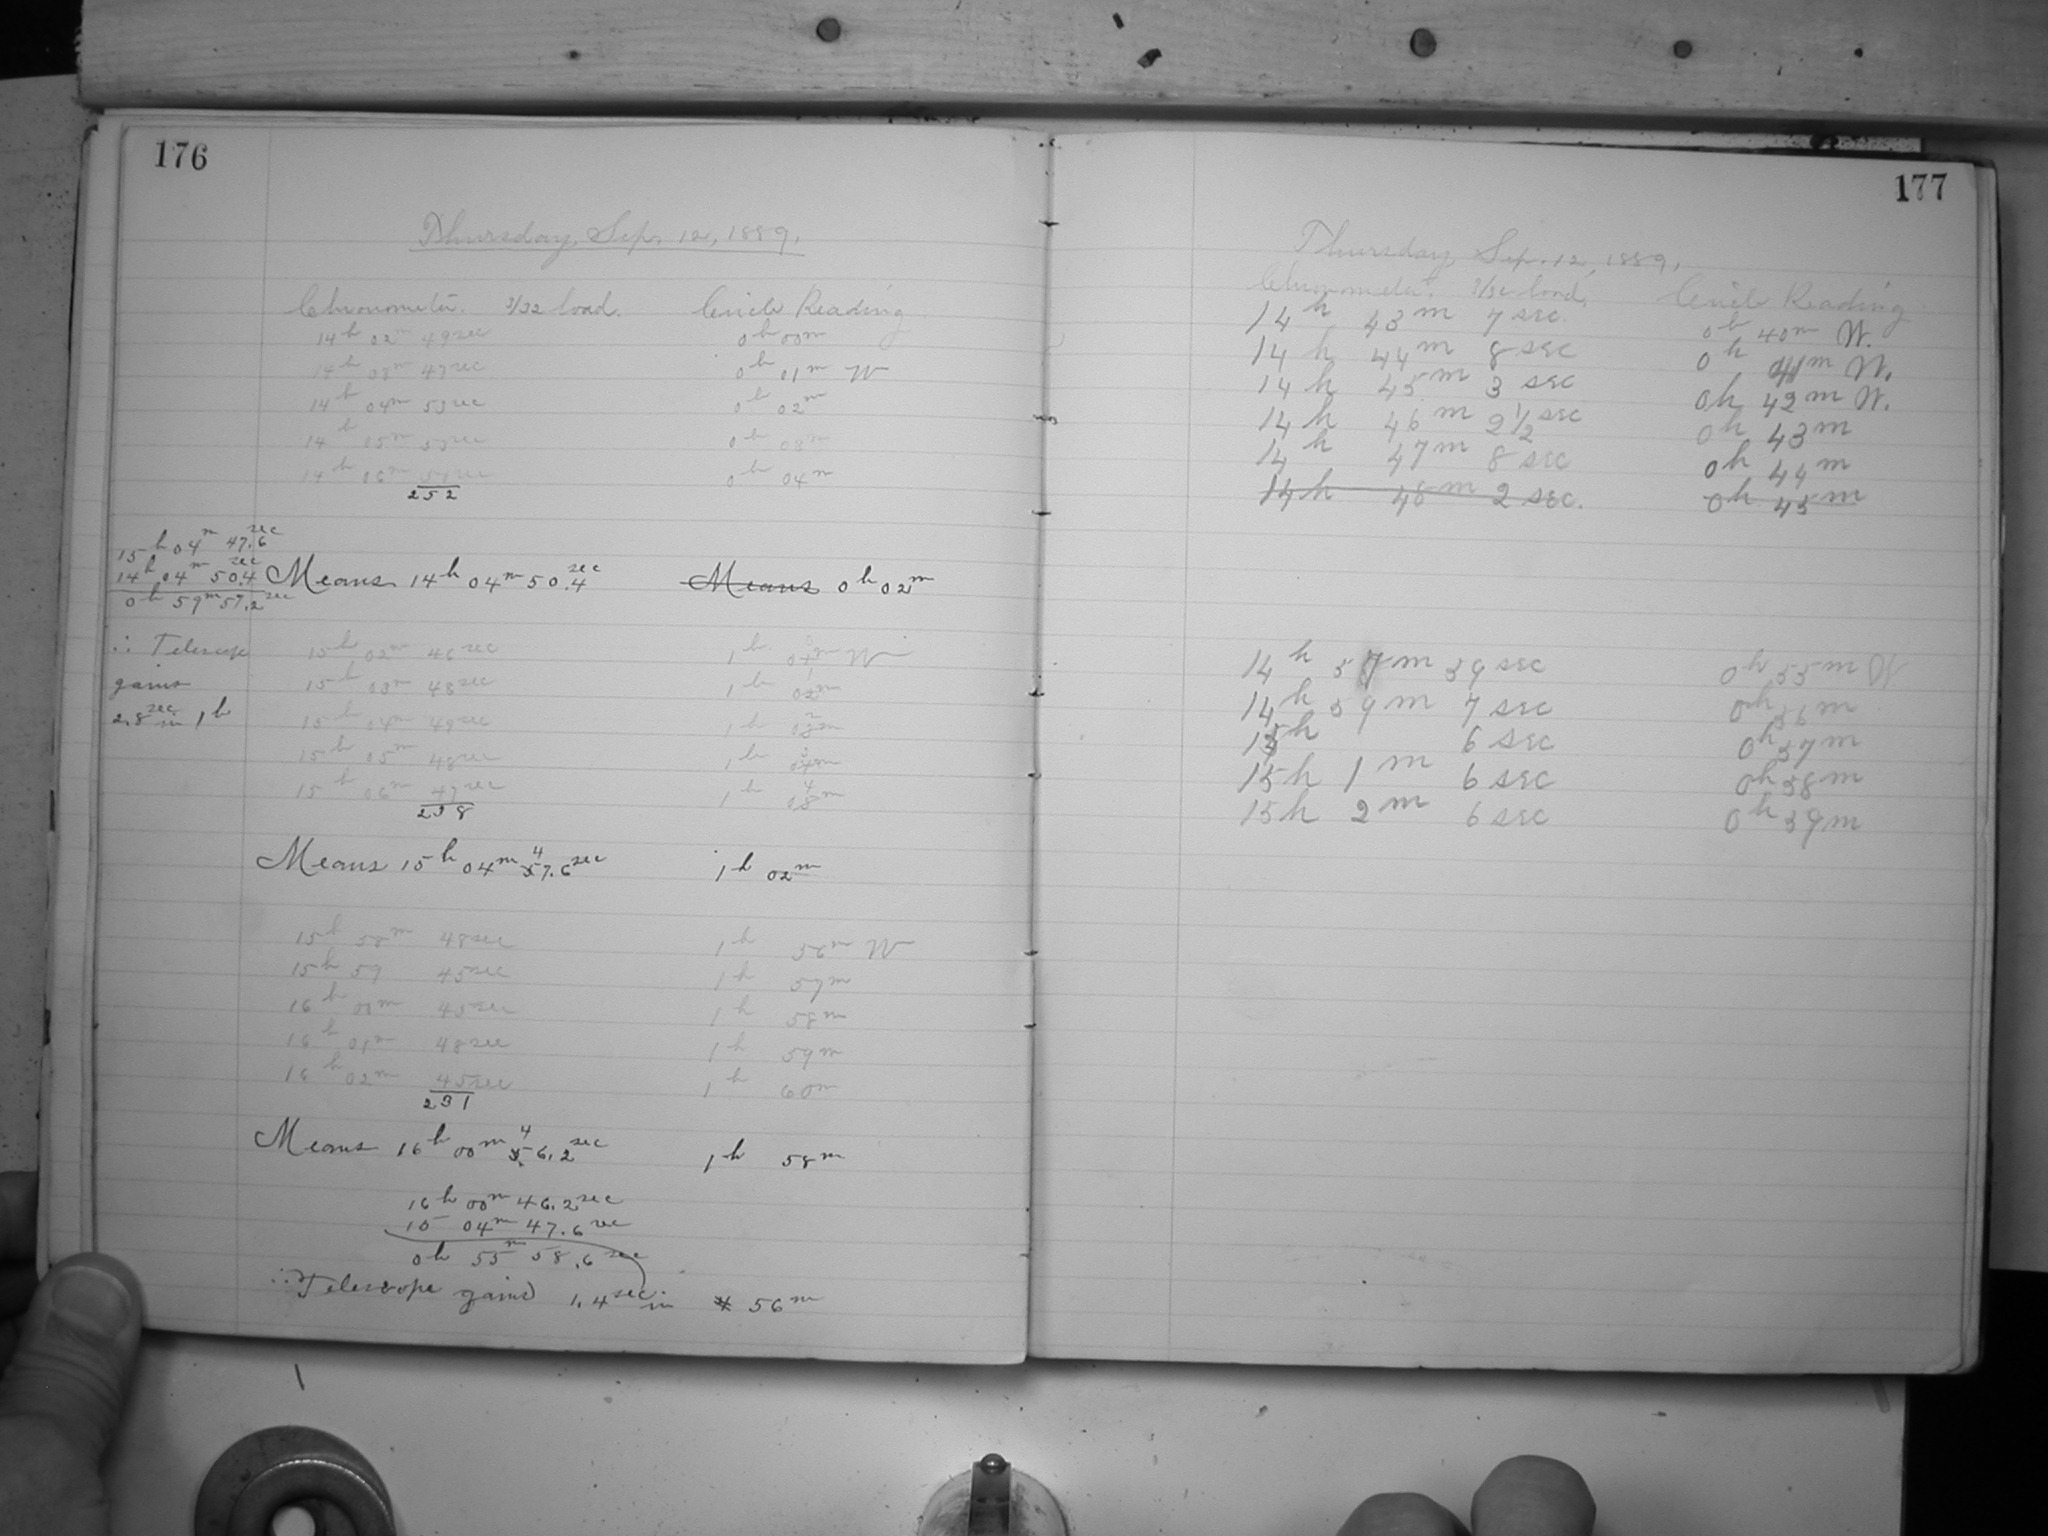 176
Thursday, Sep. 12, 1889.
Chronometer. 3/32 load. Circle Reading
14h 02m 49sec 0h 00m
14h 03m 47sec 0h 01m W
14h 04m 53sec 0h 02m
14h 05m 53sec 0h 03m
14h 06m 0h 04m
252
15h 04m 47.6sec
14h 04m 50.4sec
0h 59m 57.2sec
Means 14h 04m 50.4sec Means 0h 02m
∴ Telescope
gains
2.8sec in 1h
15h 02m 46sec 1h W
15h 03m 48sec 1h 02m
15h 04m 49sec 1h
15h 05m 48sec 1h
15h 06m 47sec 1h
238
Means 15h 04m 47.6sec 1h 02m
15h 58m 48sec 1h 56m W
15h 59 45sec 1h 57m
16h 00m 45sec 1h 58m
16h 01m 48sec 1h 59m
16h 02m 45sec 1h 60m
231
Means 16h 00m 46.2sec 1h 58m
16h 00m 46.2sec
15 04m 47.6sec
0h 55m 58.6sec
∴ Telescope gains 1.4sec in 56m
177
Thursday, Sep. 12, 1889.
Chronometer. load. Circle Reading
14h 43m 7sec. 0h 40m W.
14h 44m 8sec 0h 41m W.
14h 45m 3sec 0h 42m W.
14h 46m 2½sec 0h 43m
14h 47m 8sec 0h 44m
14h 48m 2sec. 0h 45m
14h 57m 59sec 0h 55m W
14h 59m 7sec 0h 56m
15h 6sec 0h 57m
15h 1m 6sec 0h 58m
15h 2m 6sec 0h 59m